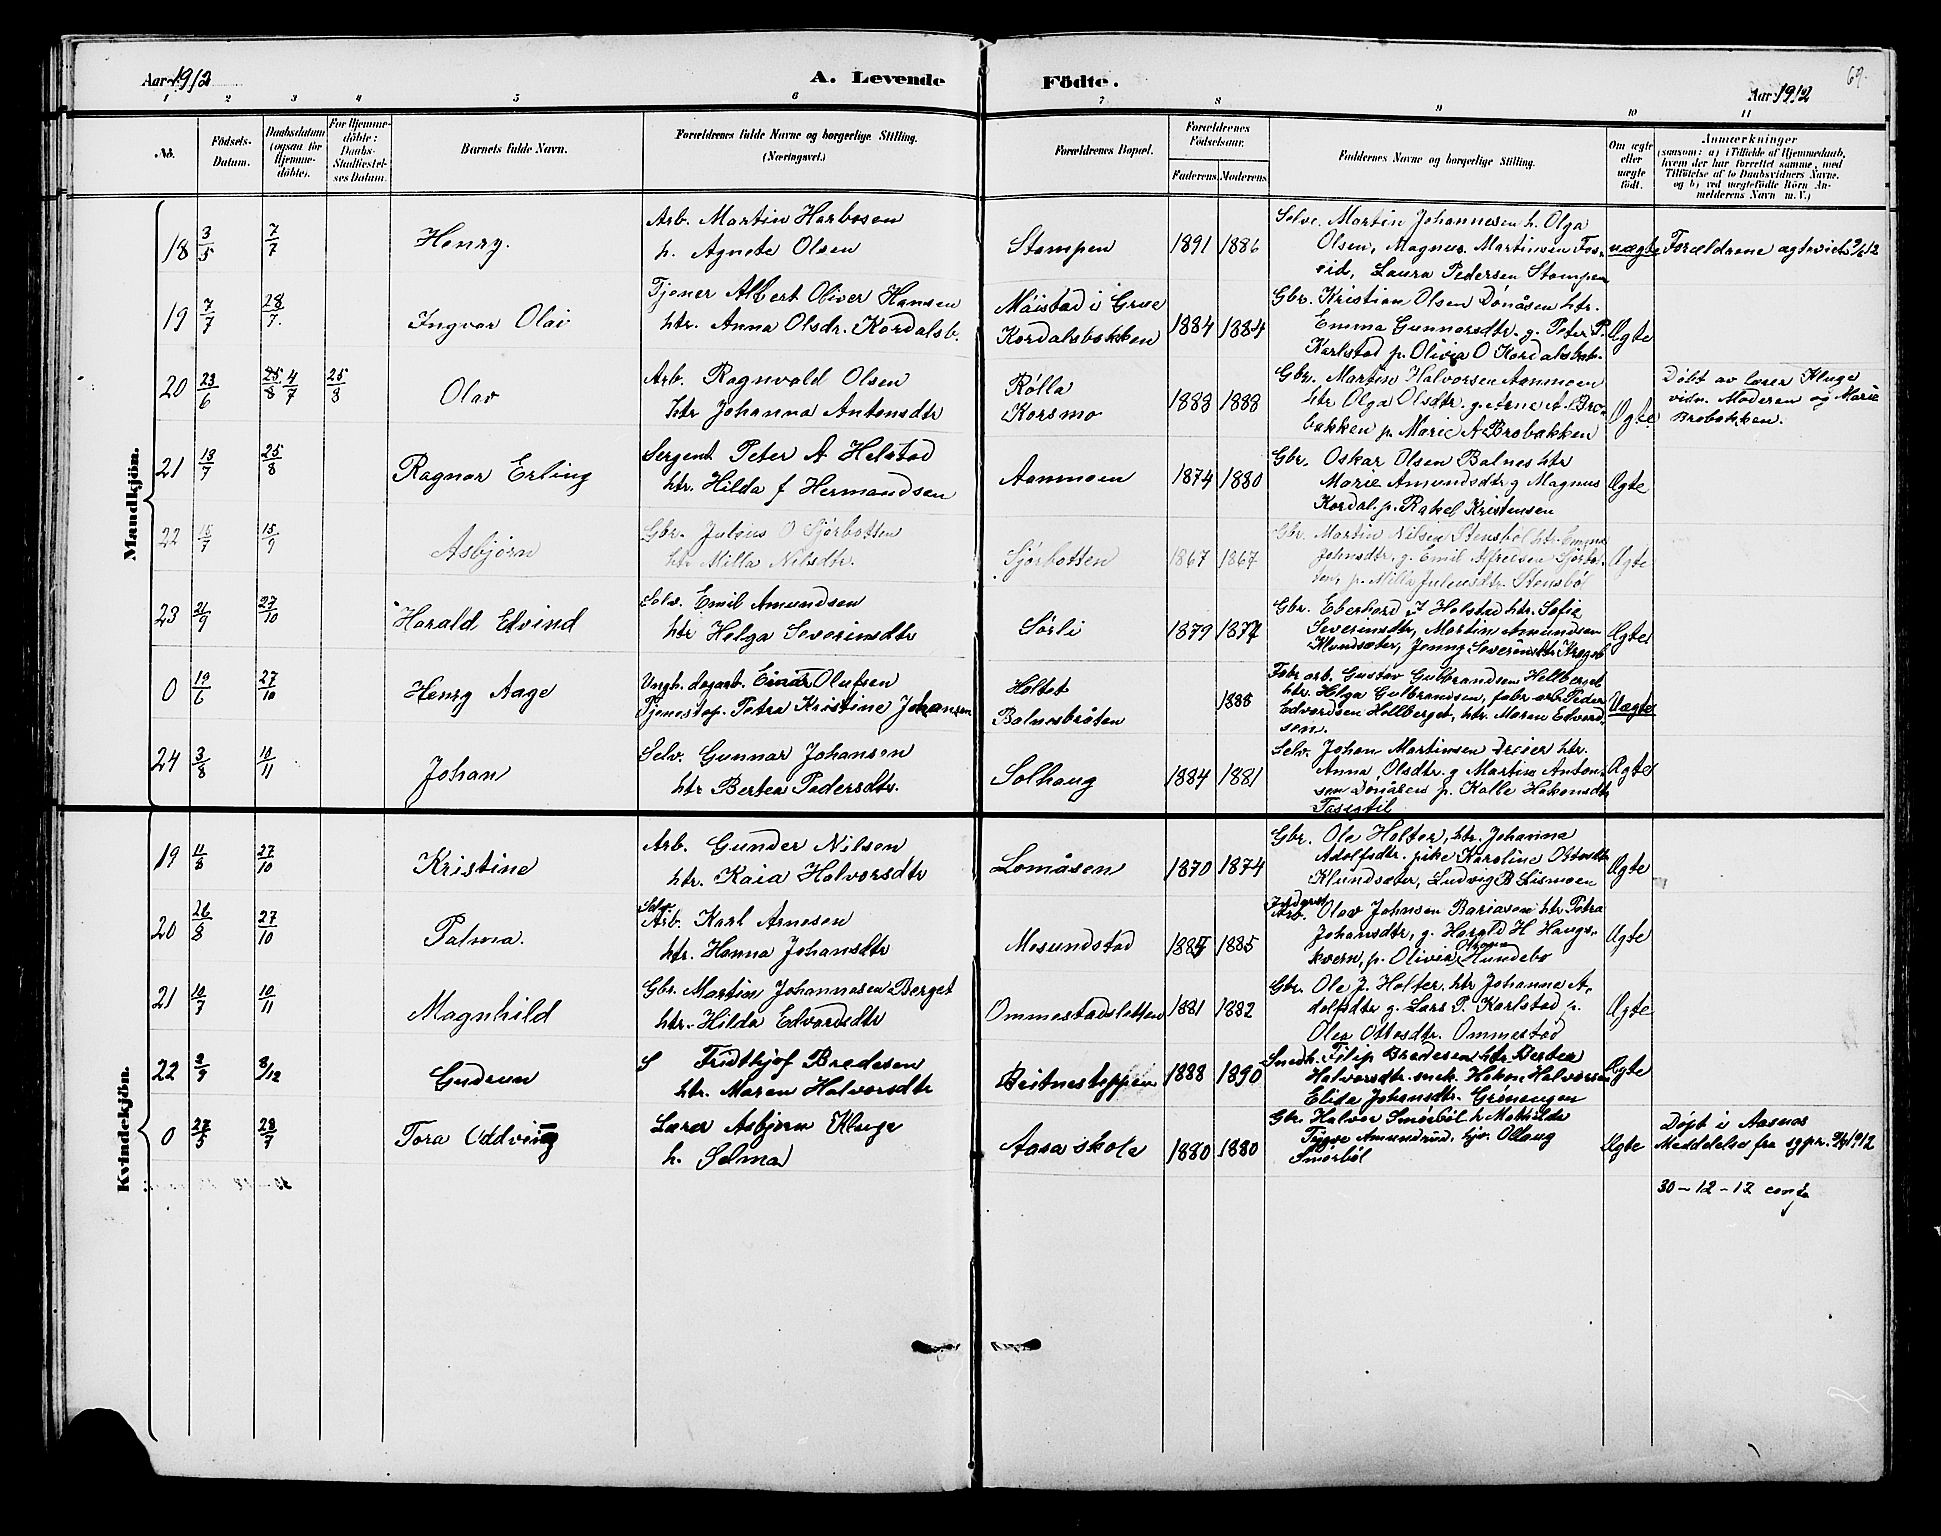 Aar 1912 A. Levende Födte. Aar 1912 69.
1 2 3 4 5 6 7 8 9 10 11
No. Födsels-Datum. Daabsdatum (ogsaa for Hjemmedöbte). For Hjemmedöbte: Daabs-Stadfæstelses Datum. Barnets fulde Navn. Forældrenes fulde Navne og borgerlige Stilling. (Næringsvei.) Forældrenes Bopæl. Forældrenes Födselsaar. Faderens Moderens Faddernes Navne og borgerlige Stilling. Om ægte eller uægte födt. Anmærkninger (saasom: a) i Tilfælde af Hjemmedaab, hvem der har forrettet samme, med Tilföielse af to Daabsvidners Navne, og b) ved uægtefödte Börn Anmelderens Navn m. V.)
Mandkjön.
18 3/5 7/7 Henry. Arb. Martin Harbosen
h. Agnete Olsen Stompen 1891 1886 Selve. Martin Johannesen h. Olga
Olsen, Magnus Martinsen Fos-
eid, Laura Pedersen Stompen uægte Forældrene ægteviet
19 7/7 28/7. Ingvar Olai Tjener Albert Oliver Hansen
htr. Anna Olsdr. Kordalsb. Maistad i Grue
Kordalsbakken 1884 1884 Gbr. Kristian Olsen Dönåsen htr.
Emma Gunnarsdtr. g. Peter P.
Karlstad p. Olivia O Kordalsbak- Ægte
20 23/6 25/8 4/7 25/8 Olav Arb. Ragnvald Olsen
htr Johanna Antonsdtr Rølla
Korsmo 1888 1888 Gbr. Martin Halvorsen Aanmoen
htr Olga Olsdtr. g. Arne A. Bro-
bakken p. Marie A Brobakken Ægte Döbt av lærer Kluge
vidn. Moderen og Marie
Brobakken.
21 13/7 25/8 Ragnar Erling Sergent Peter A Helstad
htr. Hilda f Hermandsen Aanmoen 1874 1880 Gbr. Oskar Olsen Balnes htr
Marie Amundsdtr. g Magnus
Kordal. p. Rakel Kristensen Ægte
22 15/7 15/9 Asbjørn Gbr. Julius O Sjørbotten
htr Milla Nilsdtr. Sjørbotten 1867 1867 Gbr. Martin Nilsen Stensböl htr. Emma
Johnsdtr. g. Emil Alfredsen Sjørbot-
ten, p. Milla Juliusdtr. Stensböl Ægte
23 21/9 27/10 Harald Edvind Selv. Emil Amundsen
htr Helga Severinsdtr Sørli 1879 1877 Gbr. Eberhard J Holstad htr. Sofie
Severinsdtr, Martin Amundsen
Klundsæter, Jenny Severinsdtr Ægte
0 19/6 27/10 Henry Aage Ungk. dagarb. Einar Olufsen
Tjenestep. Petra Kristine Johansen Holtet
Balnesbråten 1888 Fabr. arb. Gustav Gulbrandsen Hellberget,
htr. Helga Gulbrandsen, fabr. arb. Peder
Edvardsen Hellberget, htr. Maren Edvard-
sen. Uægte
24 3/8 10/11 Johan Selv. Gunnar Johansen
htr Bertea Pedersdtr. Solhaug 1884 1881 Selv. Johan Martinsen Dreier htr.
Anna Olsdtr. g Martin Anton-
sen Dönåsen p. Kalle Hakonsdtr
Ægte
Kvindekjön.
19 11/8 27/10 Kristine Arb. Gunder Nilsen
htr. Kaia Halvorsdtr Lomåsen 1870 1874 Gbr. Ole Holter, htr. Johanna
Adolfsdtr. pike Karoline
Klundsæter, Ludvig B Lismoen Ægte
20 26/8 27/10 Palma. Selv
Arb. Karl Arnesen
htr. Hanna Johansdtr Mosundstad 1885 1885 Arb. Olav Johnsen Bariåsen htr Petra
Johansdtr, g. Harald H Haugs-
kvern, p. Olivia Hundebo Ægte
21 10/7 10/11 Magnhild Gbr. Martin Johannesen Berget
htr. Hilda Edvardsdtr Ommestadsletten 1881 1882 Gbr. Ole J. Holter. htr Johanne A-
dolfsdtr g. Lars P. Karlstad p.
Olea Ottosdtr. Ommestad Ægte
22 2/9 8/12 Gudrun S Fridthjof Bredesen
htr. Maren Halvorsdtr Beitnesteppen 1888 1890 Snedk. Filip Bredesen htr Bertea
Halvorsdtr. snek. Hakon Halvorsen
Elida Johansdtr. Grönengen Ægte
0 27/5 28/7 Tora Oddveig Lærer Asbjørn Kluge
h. Selma Aasa skole 1880 1880 Gbr. Halvor Smörböl h. Mathilde
Tigve Amundrud, hjv. Ollaug
Smörböl Ægte Döpt i Aasnes
Meddelelse fra sgpr. 1912
30-12-12